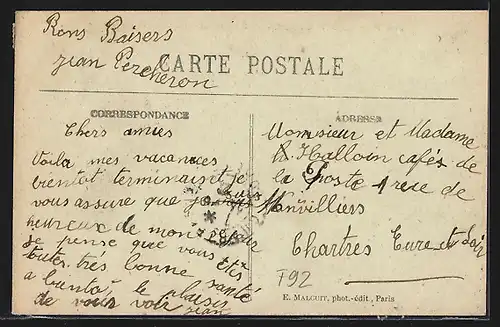 Bons Baisers
jean Percheron
CARTE POSTALE
CORRESPONDANCE
Chers amies
Voila mes vacances
bientot terminais et je
vous assure que je suis
heureux de mon sejour
je pense que vous êtes
toutes très bonne santé
a bientot le plaisir
de vous voir jean
ADRESSE
Monsieur et Madame
Halloin cafés de
la Poste rue de
Manvilliers
Chartres Eure et Loir
T92
E. MALCUIT, phot.-édit, Paris